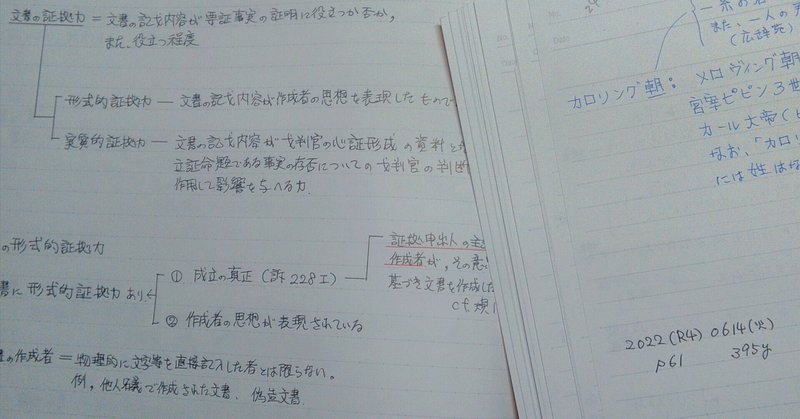 文書の証拠力 = 文書の記载内容が要証事実の証明に役立つか否か,
また, 役立つ程度
形式的証拠力 — 文書の記载内容が作成者の思想を表現したもので
実質的証拠力 — 文書の記载内容が裁判官の心証形成の資料と
立証命題である事実の存否についての裁判官の判断
作用して影響を与へる力.
の形式的証拠力
書に形式的証拠力あり
① 成立の真正 (訴228Ⅰ)
② 作成者の思想が表現されている
証拠申出人の主
作成者が, その意
基づき文書を作成した
cf. 規
の作成者 = 物理的に文字等を直接記入した者とは限らない。
例, 他人名義で作成された文書、偽造文書
一系の
また、一人の
(広辞苑)
カロリング朝: メロヴィング朝
宮宰ピピン3世
カール大帝(
なお、「カロリ
には姓はな
2022(R4) 0614(火)
p61 395y